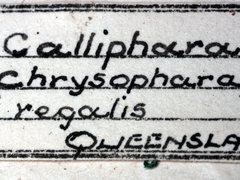 Calliphara
chrysophara
regalis
QUEENSLA